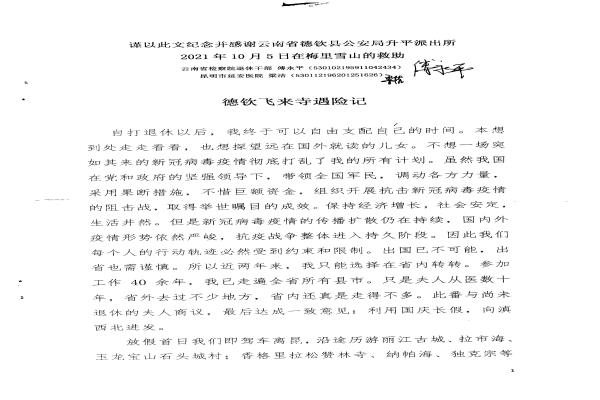 谨以此文纪念并感谢云南省德钦县公安局升平派出所
2021 年 10 月 5 日在梅里雪山的救助
云南省检察院退休干部 傅永平（530102195911042434）
昆明市延安医院 梁洁（530112196201251626）
德钦飞来寺遇险记
自打退休以后，我终于可以自由支配自己的时间。本想
到处走走看看，也想探望远在国外就读的儿女。不想一场突
如其来的新冠病毒疫情彻底打乱了我的所有计划。虽然我国
在党和政府的坚强领导下，带领全国军民，调动各方力量，
采用果断措施，不惜巨额资金，组织开展抗击新冠病毒疫情
的阻击战，取得举世瞩目的成效。保持经济增长，社会安定，
生活井然。但是新冠病毒疫情的传播扩散仍在持续，国内外
疫情形势依然严峻，抗疫战争整体进入持久阶段。因此我们
每个人的行动轨迹必然受到约束和限制。出国已不可能，出
省也需谨慎。所以近两年来，我只能选择在省内转转。参加
工作 40 余年，我已走遍全省所有县市。只是夫人从医数十
年，省外去过不少地方，省内还真是走得不多。此番与尚未
退休的夫人商议，最后达成一致意见：利用国庆长假，向滇
西北进发。
放假首日我们即驾车离昆，沿途历游丽江古城、拉市海、
玉龙宝山石头城村；香格里拉松赞林寺、纳帕海、独克宗等
1